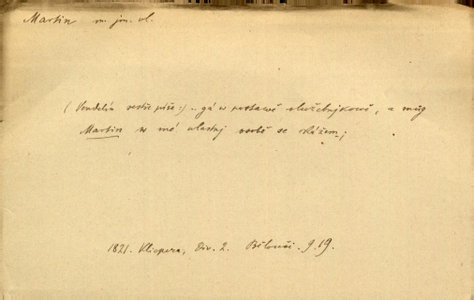 Martin m. jm. vl.
(Vendelín sestře píše:) .. gá w postawě služebnjkowě, a můg
Martin w mé wlastnj osobě se vkážem;
1821. Klicpera, Div. 2. Bělouši. 9. 19.